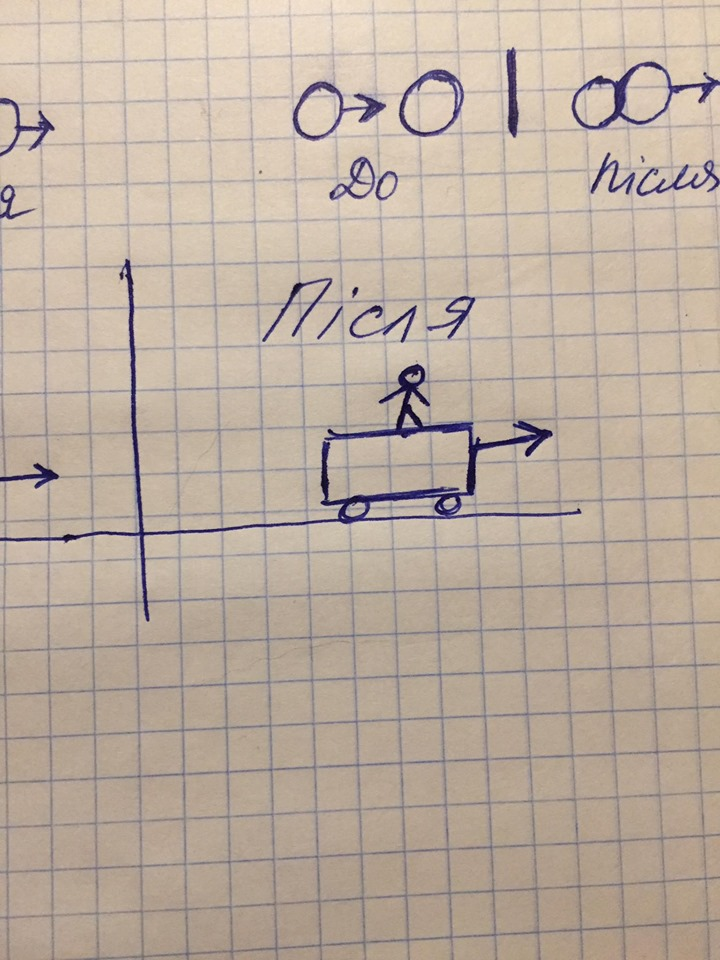 До
Після
я
Після